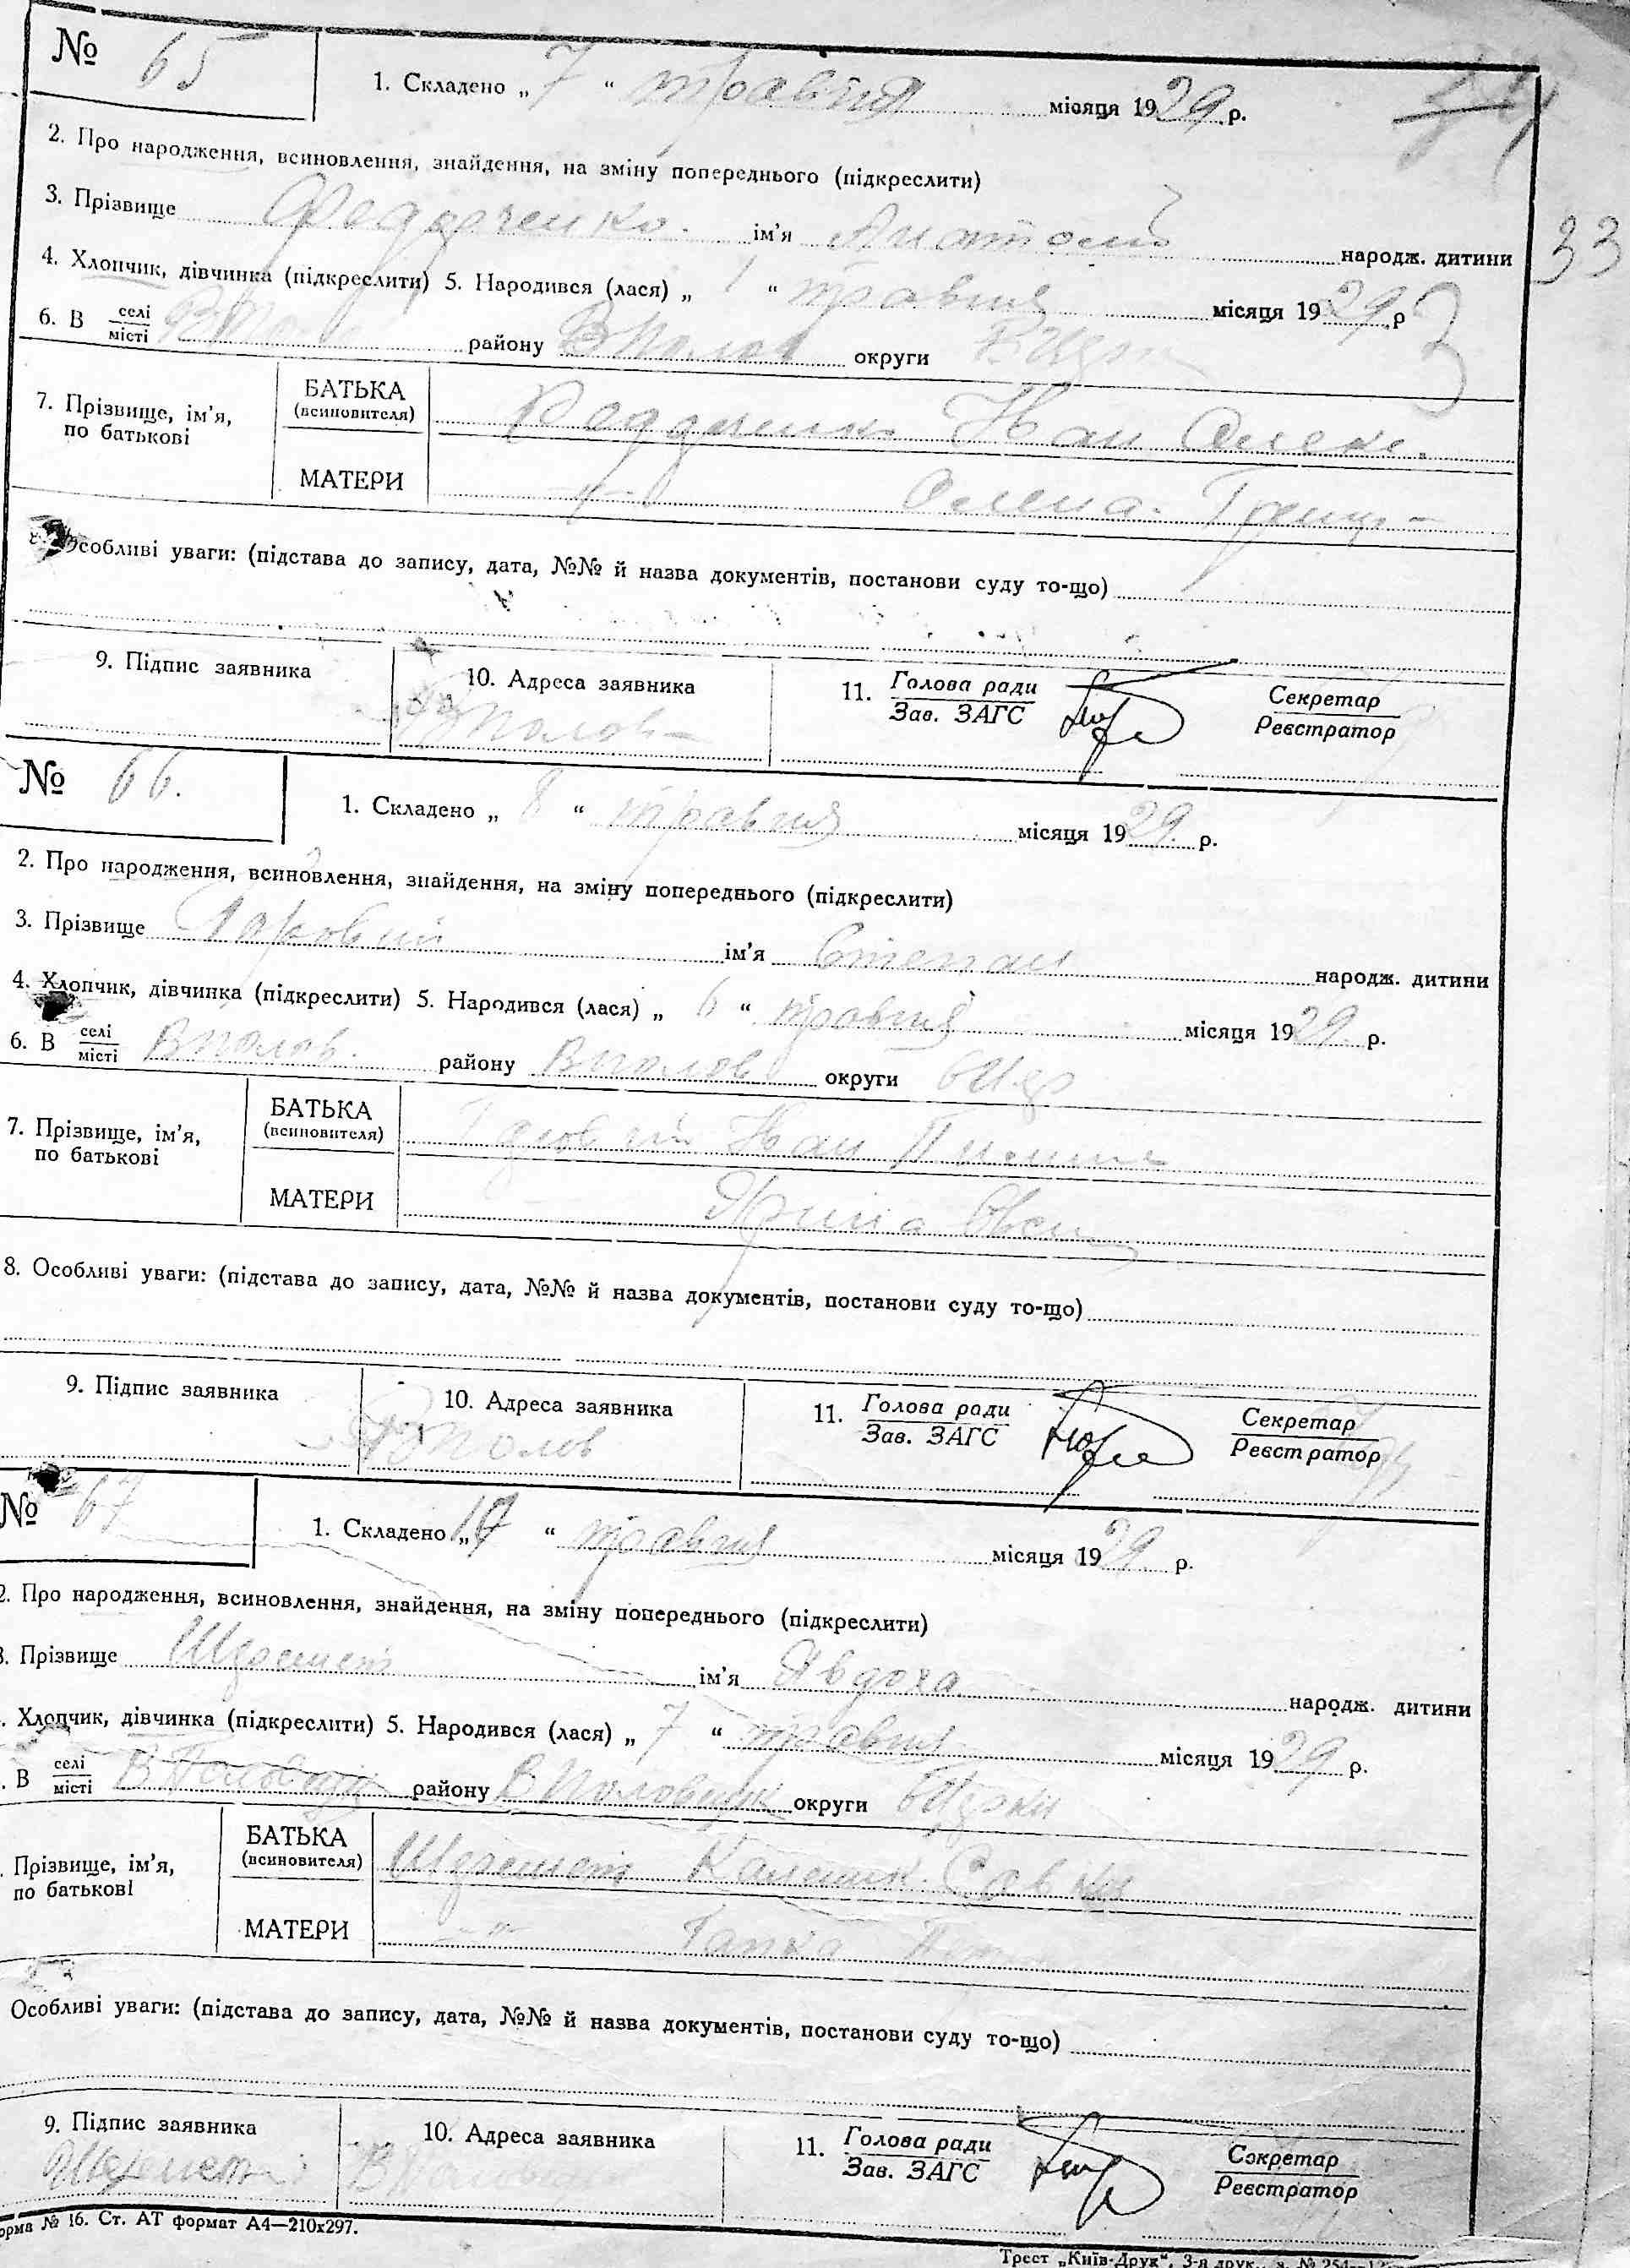 № 65
1. Складено „ 7 “ травня місяця 1929 р.
2. Про народження, всиновлення, знайдення, на зміну попереднього (підкреслити)
3. Прізвище Федорченко. ім'я Анатолій народж. дитини
33
4. Хлопчик, дівчинка (підкреслити) 5. Народився (лася) „ 1 “ травня місяця 1929 р
6. В селі місті району ВПолов округи БЦер
7. Прізвище, ім'я, по батькові
БАТЬКА (всиновителя) Федорченко Іван Олекс.
МАТЕРИ Олена Грицц-
Особливі уваги: (підстава до запису, дата, №№ й назва документів, постанови суду то-що)
9. Підпис заявника
10. Адреса заявника ВПолов
11. Голова ради Зав. ЗАГС
Секретар Реєстратор
№ 66.
1. Складено „ 8 “ травня місяця 1929 р.
2. Про народження, всиновлення, знайдення, на зміну попереднього (підкреслити)
3. Прізвище ім'я Степан народж. дитини
4. Хлопчик, дівчинка (підкреслити) 5. Народився (лася) „ 6 “ травня місяця 1929 р.
6. В селі місті ВПолов. району ВПолов округи БЦер
7. Прізвище, ім'я, по батькові
БАТЬКА (всиновителя) Іван Пилип
МАТЕРИ Ярина Овси
8. Особливі уваги: (підстава до запису, дата, №№ й назва документів, постанови суду то-що)
9. Підпис заявника
10. Адреса заявника ВПолов
11. Голова ради Зав. ЗАГС
Секретар Реєстратор
№ 67
1. Складено „ “ травня місяця 1929 р.
2. Про народження, всиновлення, знайдення, на зміну попереднього (підкреслити)
3. Прізвище Шеремет ім'я Явдоха народж. дитини
. Хлопчик, дівчинка (підкреслити) 5. Народився (лася) „ 7 “ травня місяця 1929 р.
. В селі місті району ВПоловецьк округи БЦеркв
. Прізвище, ім'я, по батькові
БАТЬКА (всиновителя) Шеремет Калиник Савки
МАТЕРИ -"- Гапка
Особливі уваги: (підстава до запису, дата, №№ й назва документів, постанови суду то-що)
9. Підпис заявника Шеремет
10. Адреса заявника
11. Голова ради Зав. ЗАГС
Секретар Реєстратор
орма № 16. Ст. АТ формат А4—210х297.
Трест „Київ-Друк“, 3-я друк.